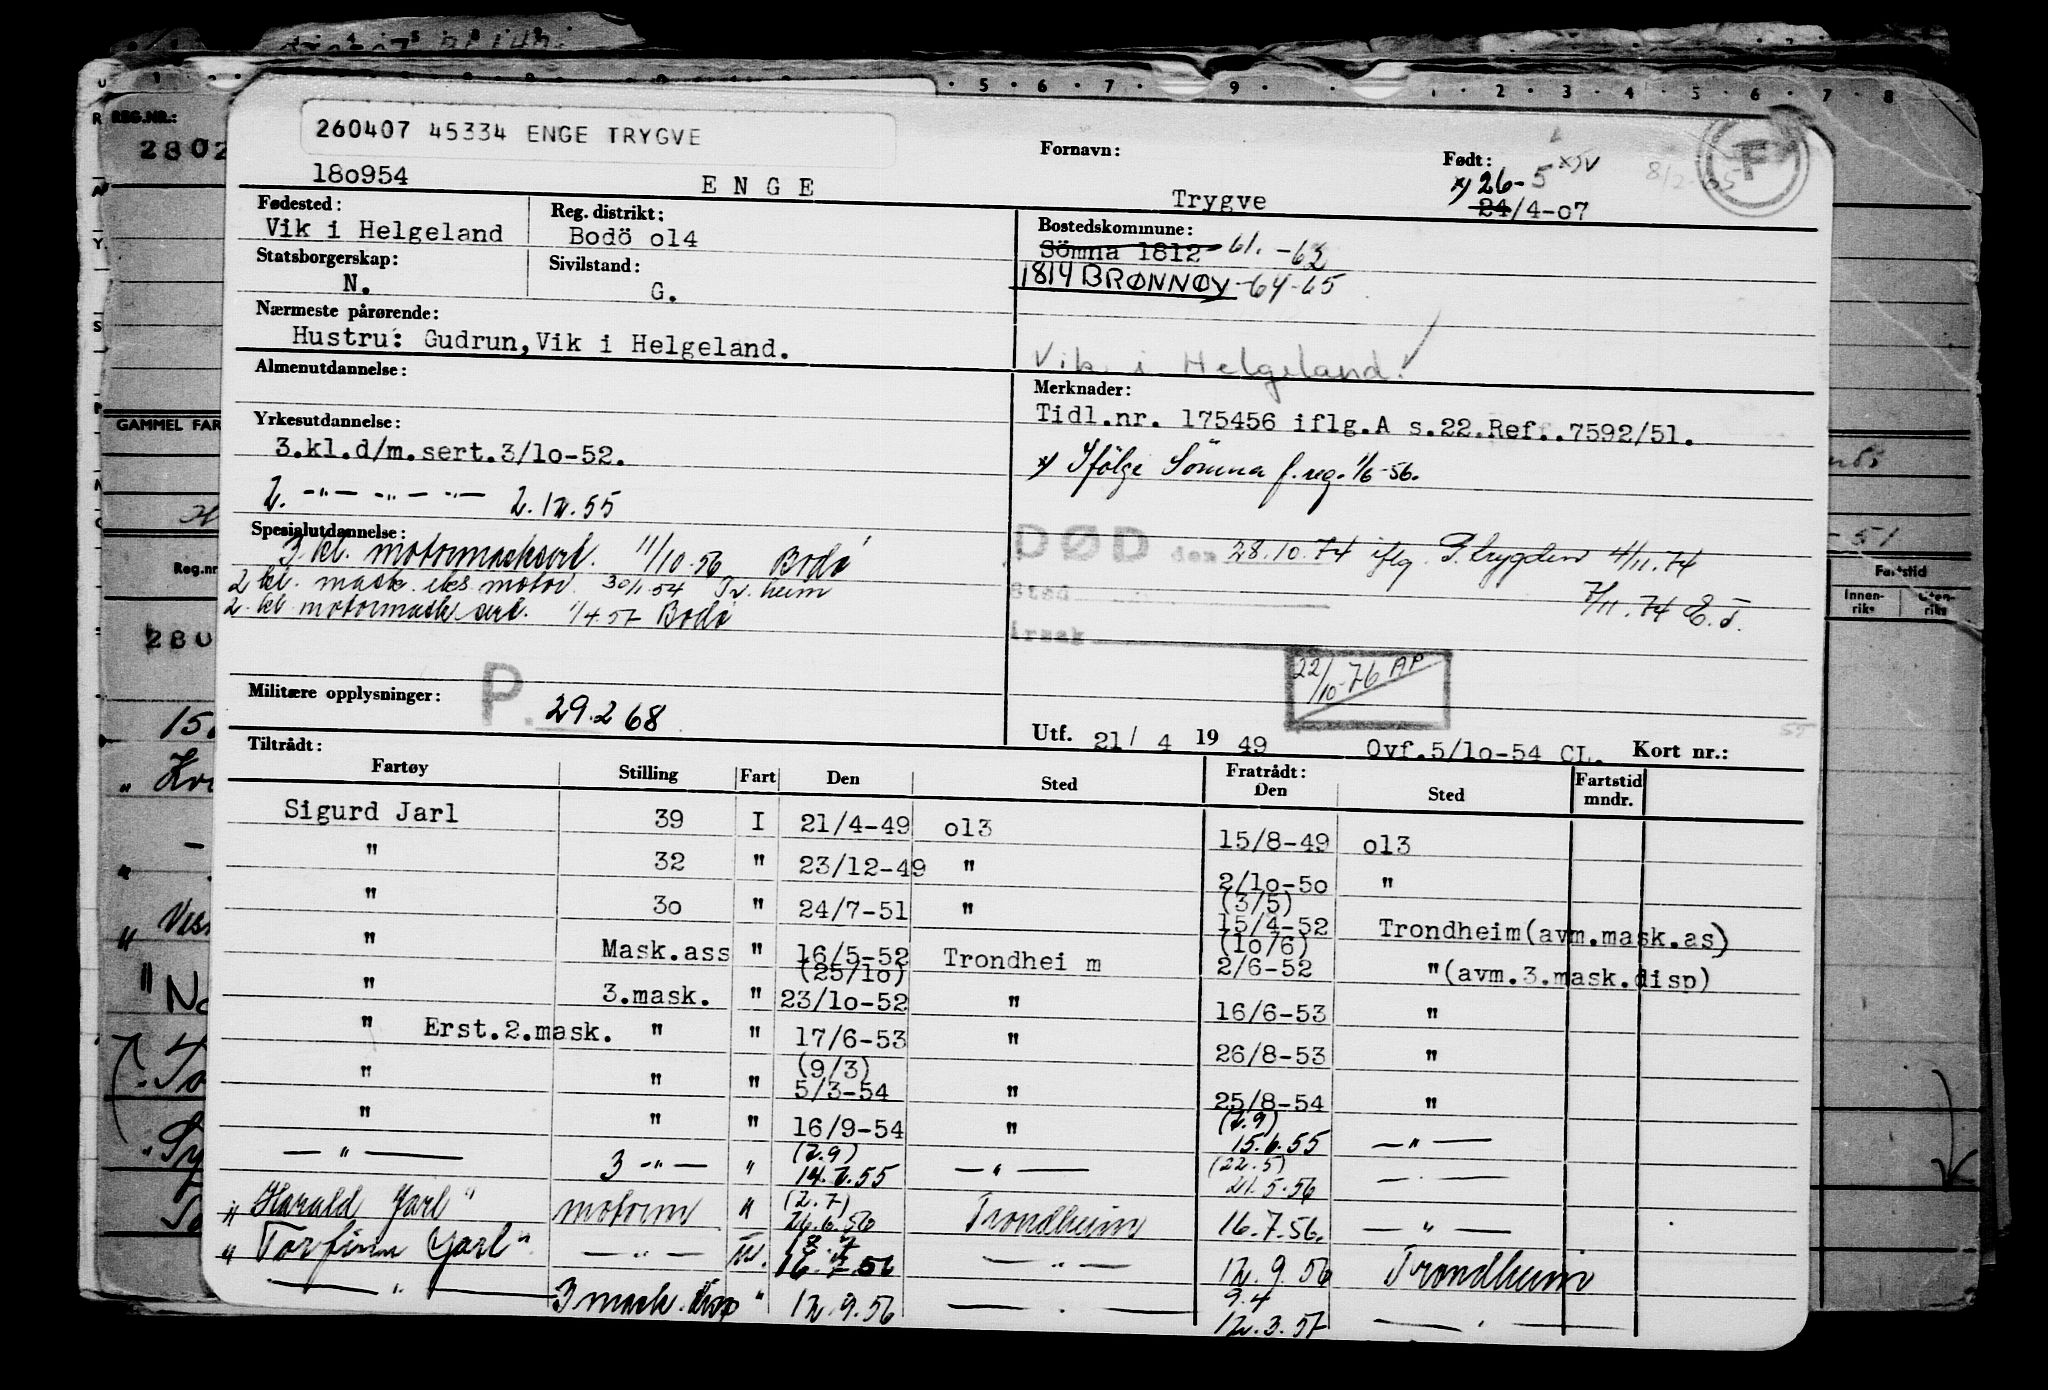 260407 45334 ENGE TRYGVE
18o954
E N G E
Fornavn:
Trygve
Født:
x) 26-5
24/4-o7
8/2-65
F
Fødested:
Vik i Helgeland
Reg. distrikt:
Bodö o14
Bostedskommune:
Sömna 1812 61.-63
1814 BRØNNØY -64-65
Statsborgerskap:
N.
Sivilstand:
G.
Nærmeste pårørende:
Hustru: Gudrun,Vik i Helgeland.
Vik i Helgeland.
Almenutdannelse:
Merknader:
Tidl.nr. 175456 iflg.A s.22.Ref..7592/51.
x) Ifölge Sömna f.reg. 1/6-56.
Yrkesutdannelse:
3.kl.d/m.sert.3/1o-52.
2. -"- -"- -"- 2.12.55
Spesialutdannelse:
3 kl. motormasksert. 11/10.56 Bodø
2 kl. mask. eks motor 30/1.54 Tr.heim
2. kl motormask sert. 1/4 57 Bodø
DØD den 28.10.74 iflg. P.trygden 4/11.74
Sted
7/11.74 E.T.
Årsak
22/10-76 AP
Militære opplysninger:
P. 29.2 68
Utf. 21/ 4 19 49
Ovf.5/1o-54 CL.
Kort nr.:
Tiltrådt:
Fartøy Stilling Fart Den Sted Fratrådt: Den Sted Fartstid mndr.
Sigurd Jarl 39 I 21/4-49 o13 15/8-49 o13
" 32 " 23/12-49 " 2/1o-5o "
" 3o " 24/7-51 " (3/5) 15/4-52 Trondheim(avm.mask.as)
" Mask.ass " 16/5-52 Trondhei m (1o/6) 2/6-52 "(avm.3.mask.disp)
" 3.mask. " (25/1o) 23/1o-52 " 16/6-53 "
" Erst.2.mask. " " 17/6-53 " 26/8-53 "
" " " (9/3) 5/3-54 " 25/8-54 "
" " " 16/9-54 " (2.9) 15.6.55 — " —
— " — 3 -"- " (2.9) 14.7.55 — " — (22.5) 21.5.56 — . —
" Harald Jarl " motorm " (2.7) 26.6.56 Trondheim 16.7.56. — " —
" Torfinn Jarl " — " — 16.7.56 — " — 12.9.56 Trondheim
— " — 3 mask. disp " 12.9.56 — . — 9.4 12.3.57 — . —
REG.NR.:
2802
GAMMEL FAR
Reg.nr
280
Fartstid
Innen-riks
Uten-riks